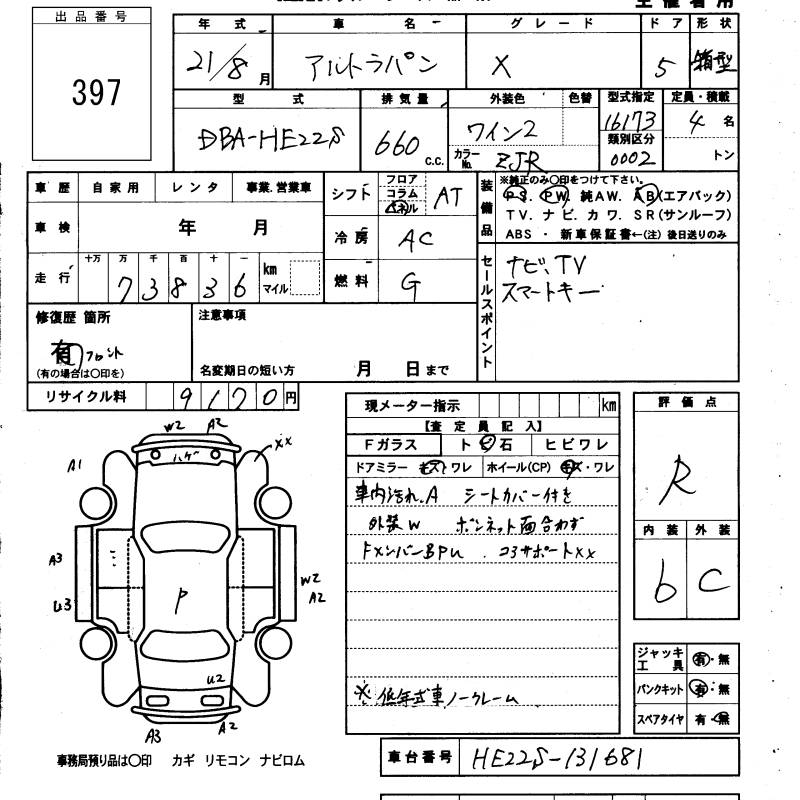 出品番号
397
年式 車名 グレード ドア 形状
21/8月 アルトラパン X 5 箱型
型式 排気量 外装色 色替 型式指定 定員・積載
DBA-HE22S 660 c.c. ワイン2 16173 4名
カラーNo. ZJR 類別区分 0002 トン
車歴 自家用 レンタ 事業.営業車
車検 年 月
走行 十万 万 千 百 十 一
7 3 8 3 6 km マイル
シフト フロア コラム パネル AT
冷房 AC
燃料 G
装備品
※純正のみ〇印をつけて下さい。
PS. PW. 純AW. AB(エアバック)
TV. ナビ. カワ. SR(サンルーフ)
ABS ・ 新車保証書←(注) 後日送りのみ
セールスポイント
ナビ、TV
スマートキー
修復歴 箇所
有 フロント
(有の場合は〇印を)
注意事項
名変期日の短い方 月 日まで
リサイクル料 9170円
現メーター指示 km
【査定員記入】
Fガラス ト ビ 石 ヒビワレ
ドアミラー キズ ワレ ホイール(CP) キズ・ワレ
車内汚れ.A シートカバー付き
外装W ボンネット面合わず
FメンバーBPU . コアサポートXX
※ 低年式車ノークレーム
評価点
R
内装 外装
b C
ジャッキ工具 有・無
パンクキット 有・無
スペアタイヤ 有・無
W2 A2
ハゲ XX
A1
A3
U3
P
W2
A2
U2
A3 A2
事務局預り品は〇印 カギ リモコン ナビロム
車台番号 HE22S-131681